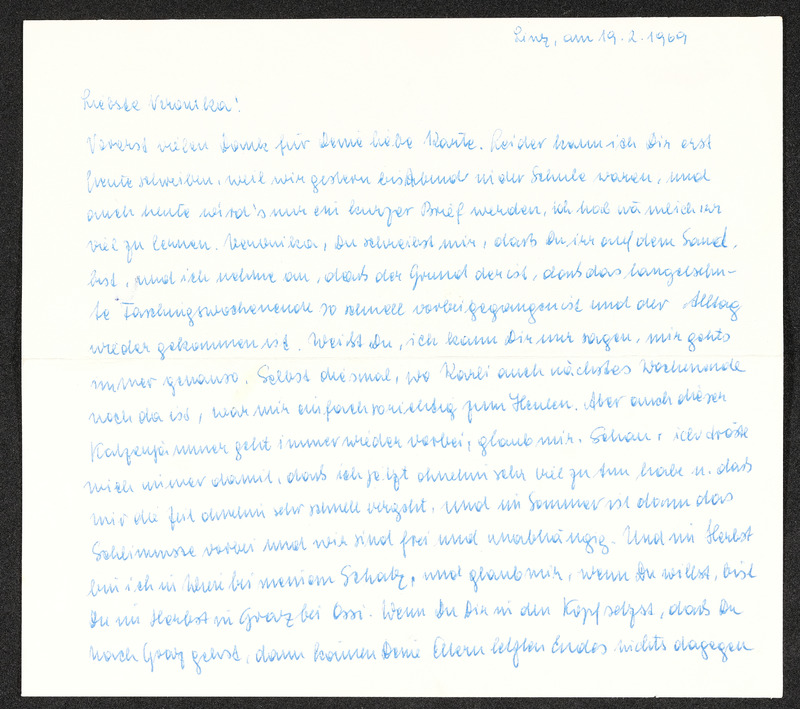 Linz, am 19.2.1969
Liebste Veronika!
Vorerst vielen Dank für Deine liebe Karte. Leider kann ich Dir erst
heute schreiben, weil wir gestern bis Abend in der Schule waren, und
auch heute wird's nur ein kurzer Brief werden, ich hab nämlich irr
viel zu lernen. Veronika, Du schreibst mir, daß Du irr auf dem Sand
bist, und ich nehme an, daß der Grund der ist, daß das langersehn-
te Faschingswochenende so schnell vorbeigegangen ist und der Alltag
wieder gekommen ist. Weißt Du, ich kann Dir nur sagen, mir gehts
immer genauso. Selbst diesmal, wo Karli auch nächstes Wochenende
noch da ist, war mir einfach so richtig zum Heulen. Aber auch dieser
Katzenjammer geht immer wieder vorbei, glaub mir. Schau, ich tröste
mich immer damit, daß ich jetzt ohnehin sehr viel zu tun habe u. daß
mir die Zeit ohnehin sehr schnell vergeht, und im Sommer ist dann das
Schlimmste vorbei und wir sind frei und unabhängig. Und im Herbst
bin ich in Wien bei meinem Schatz, und glaub mir, wenn Du willst, bist
Du im Herbst in Graz bei Ossi. Wenn Du Dir in den Kopf setzst, daß Du
nach Graz gehst, dann können Deine Eltern letzten Endes nichts dagegen